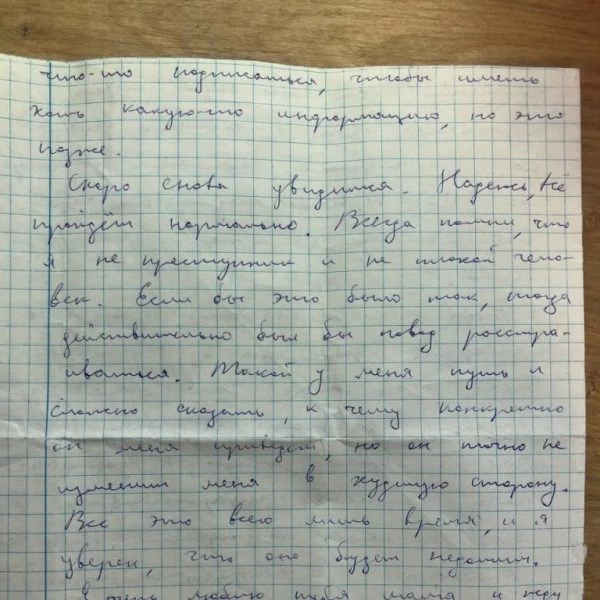 что-то подписаться, чтобы иметь
хоть какую-то информацию, но это
позже.
Скоро снова увидимся. Надеюсь, всё
пройдёт нормально. Всегда помни, что
я не преступник и не плохой чело-
век. Если бы это было так, тогда
действительно был бы повод расстра-
иваться. Такой у меня путь и
сложно сказать, к чему конкретно
он меня приведёт, но он точно не
изменит меня в худшую сторону.
Все это всего лишь время, и я
уверен, что оно будет недолгим.
Я очень люблю тебя мама и жду